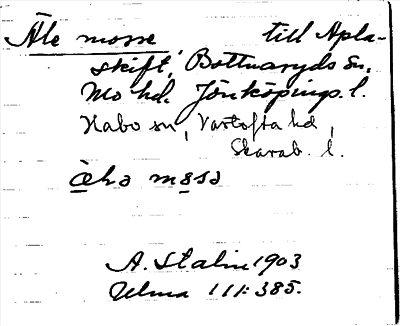 Åle mosse till Apla-
skift, Bottnaryds sn,
Mo hd. Jönköpings. l.
Habo sn, Vartofta hd,
Skarab. l.
A. Stalin 1903
Ulma 111: 385.